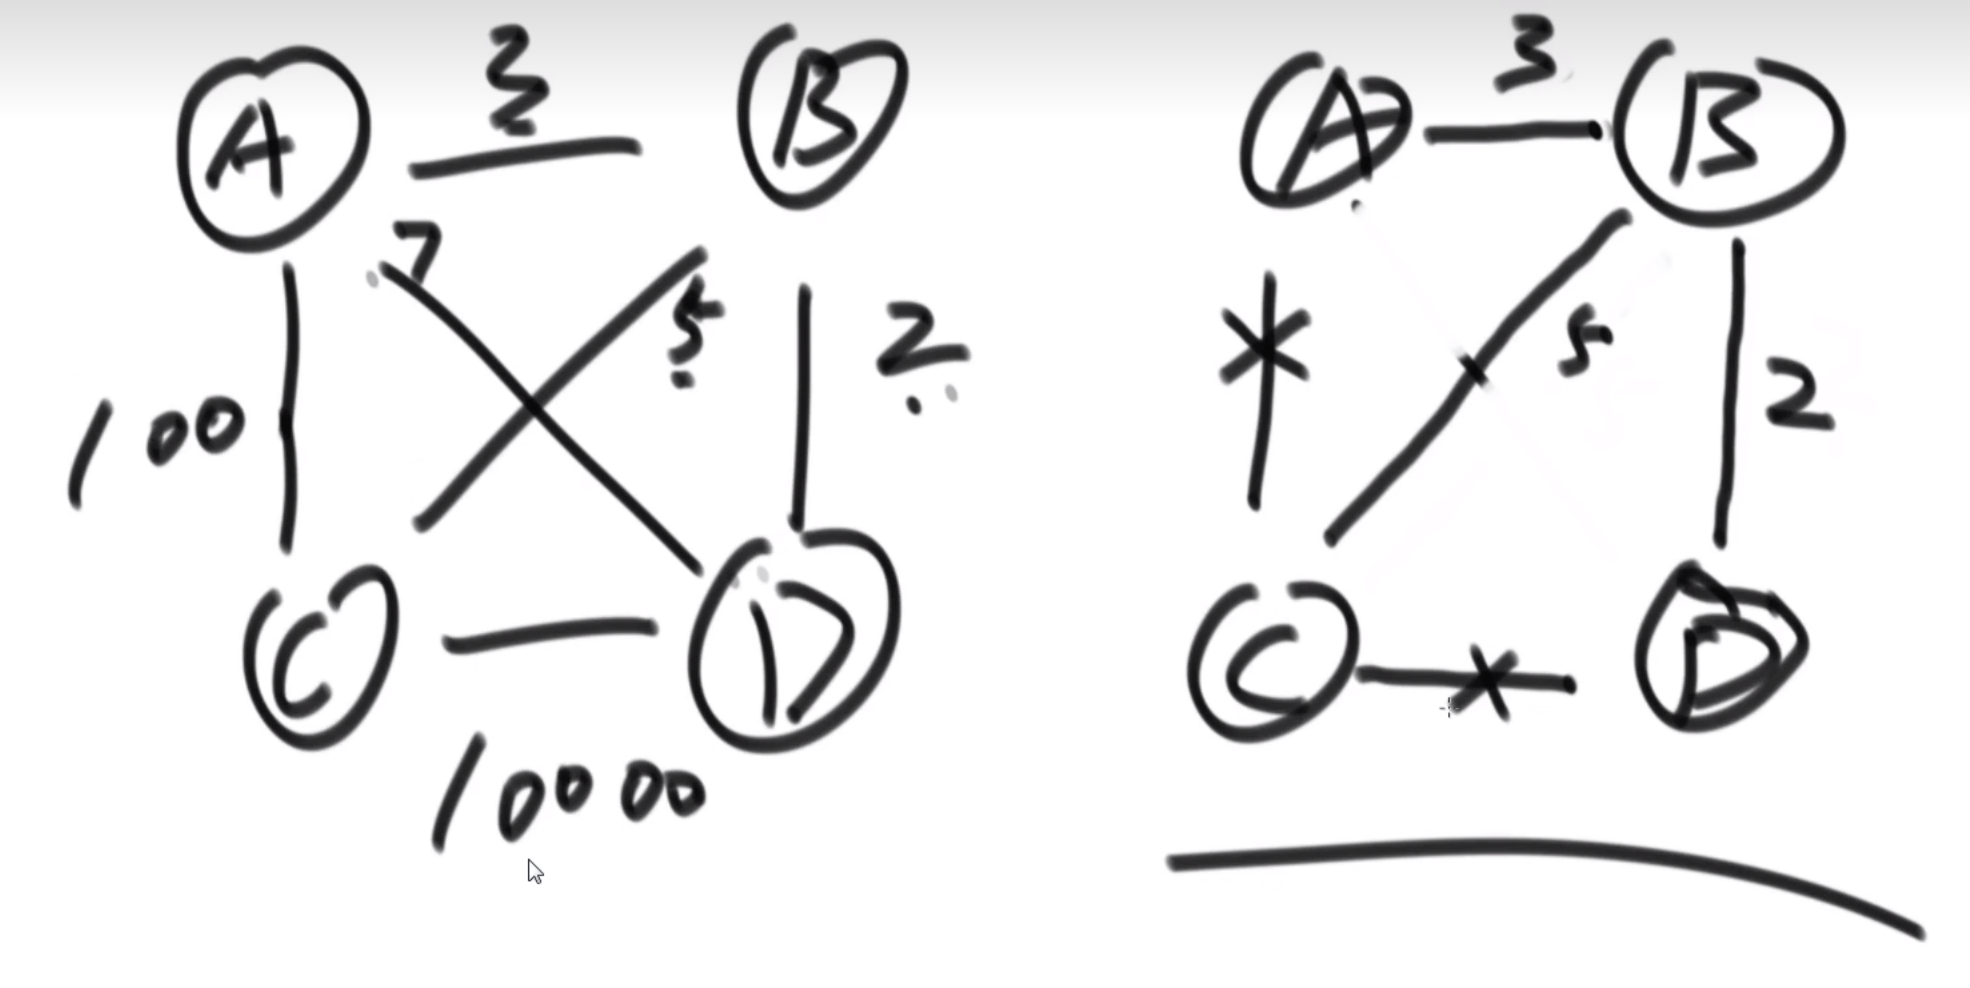 A 3 B
7
5 2
100
C D
10000
A 3 B
5 2
C D